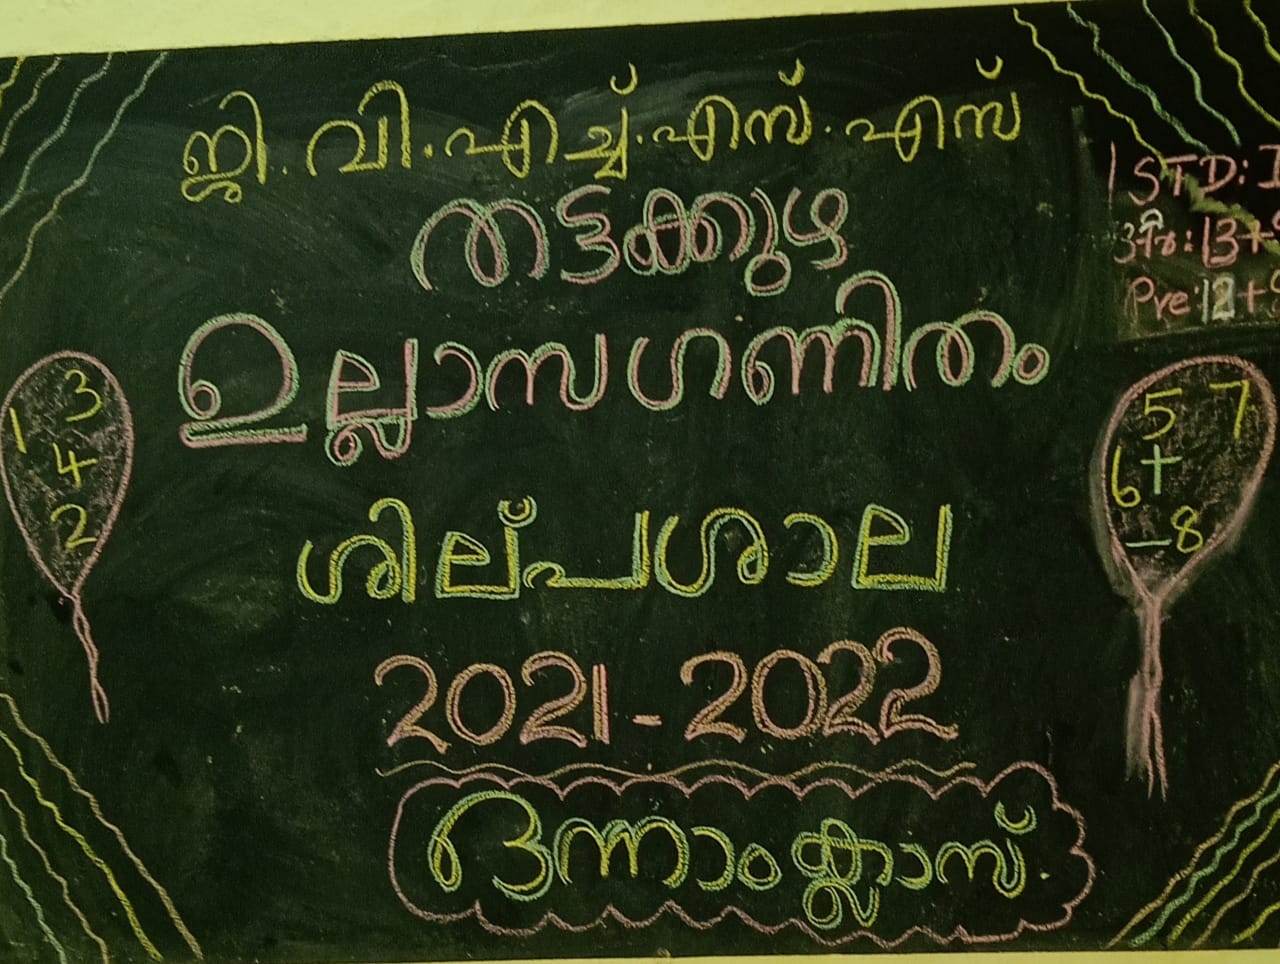 ജി.വി.എച്ച്.എസ്.എസ്
തട്ടക്കുഴ
ഉല്ലാസഗണിതം
ശില്പശാല
2021-2022
ഒന്നാംക്ലാസ്.
STD: I
Pre: 12+9
1 3
4
2
5 7
6 +
- 8